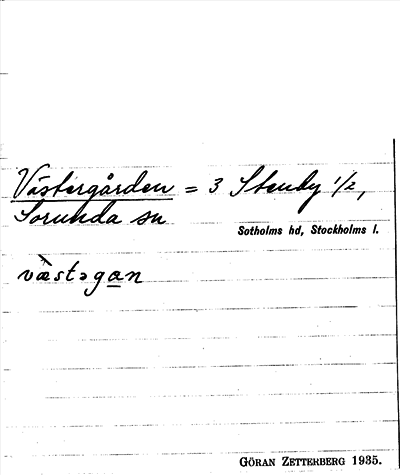 Västergården = 3 Stenby 1/2,
Sorunda sn
Sotholms hd, Stockholms l.
væ̀stəga̲n
GÖRAN ZETTERBERG 1935.